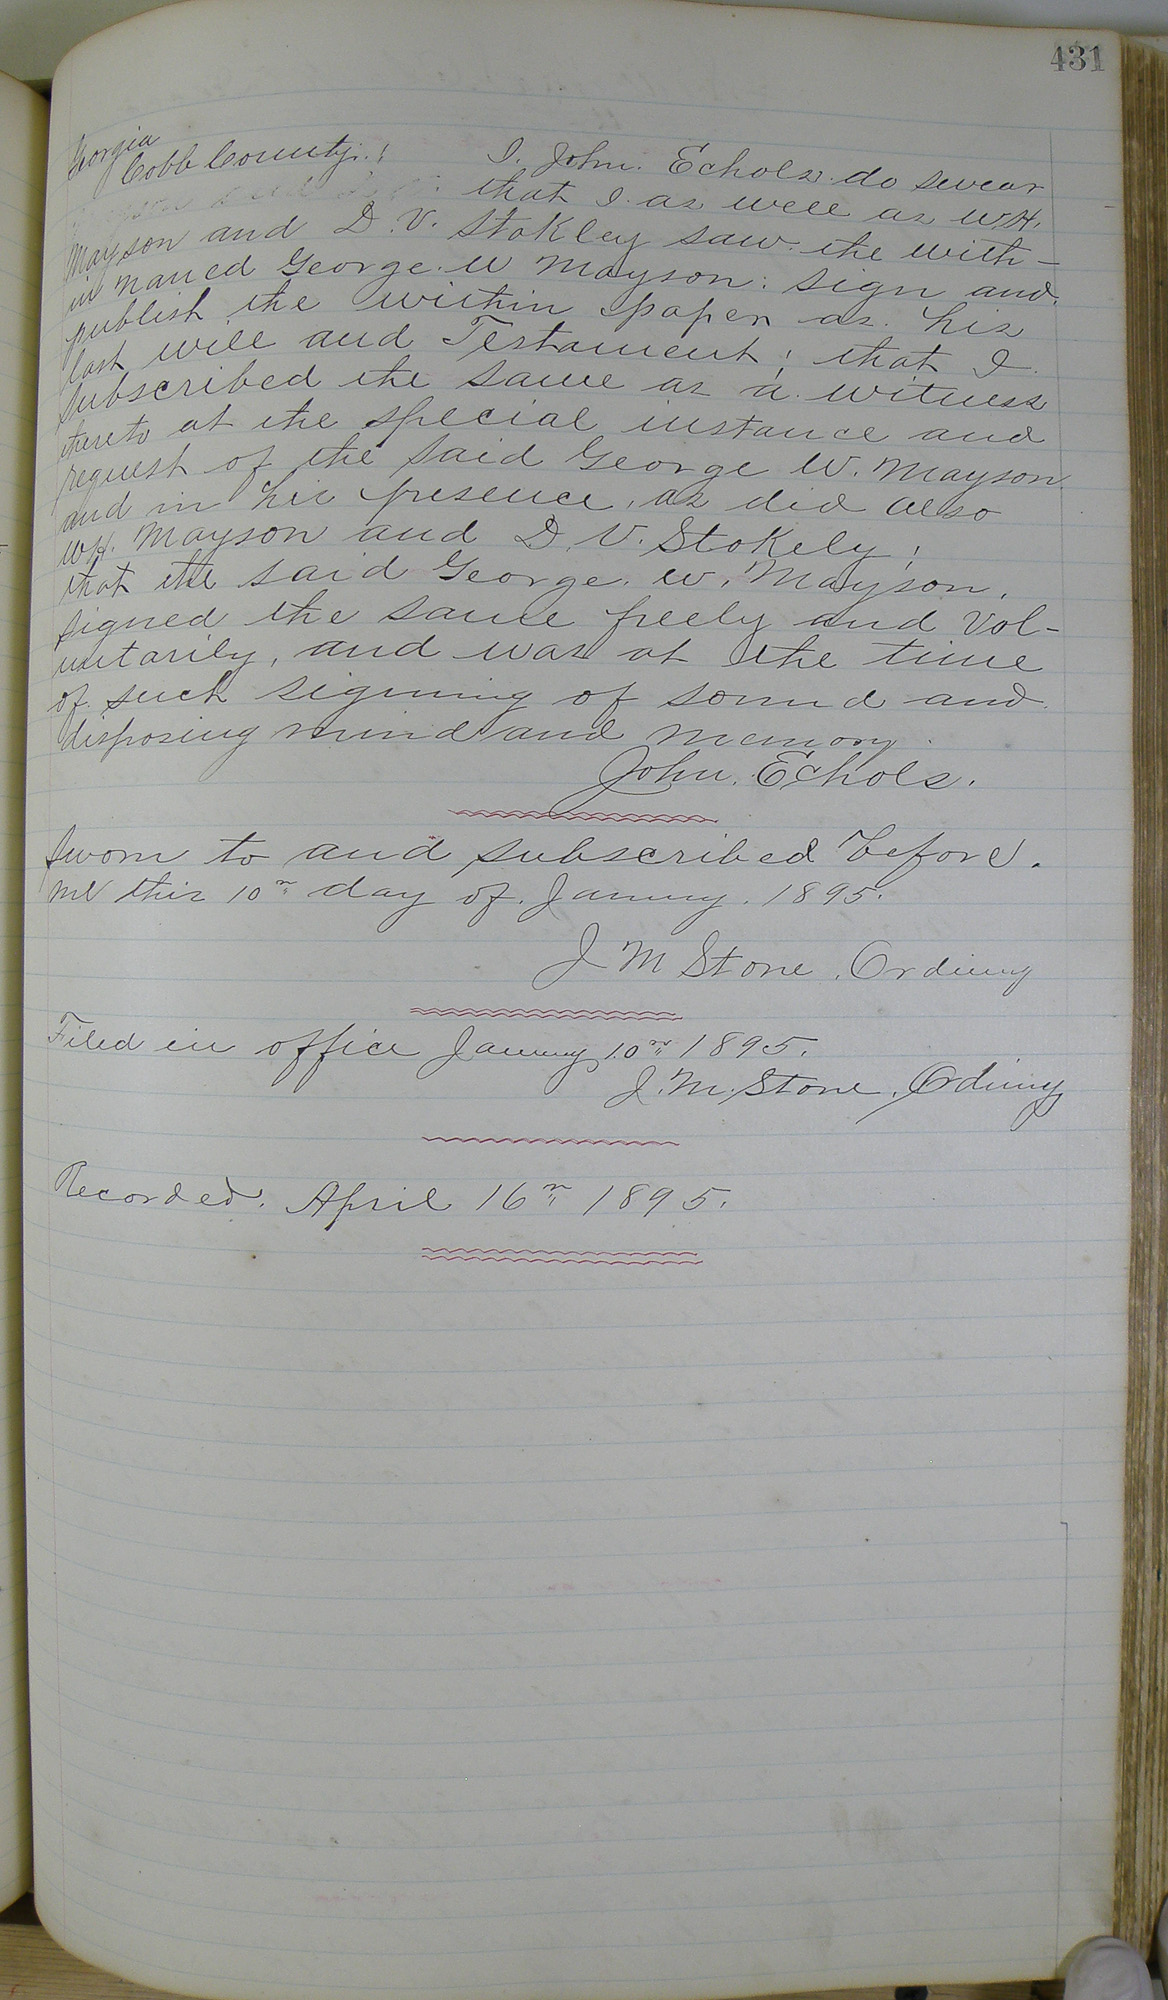 431
Georgia
Cobb County. : I. John. Echols. do swear
that I. as well as W.H.
Mayson and D. V. Stokley saw. the with-
in named George. W Mayson. sign and.
publish the within paper as. his
last will and Testament; that I.
subscribed the same as a. witness
thereto at the special instance and
request of the said George W. Mayson.
and in his presence, as did also
W.H. Mayson and D. V. Stokely;
that the said George. W. Mayson.
signed the same freely and Vol-
untarily, and was at the time
of. such signing of sound and.
disposing mind and memory.
John. Echols.
Sworn to and subscribed before.
me this 10th day of. January. 1895.
J M Stone. Ordinary
Filed in office January 10th 1895.
J. M. Stone. Ordinary
Recorded. April 16th 1895.